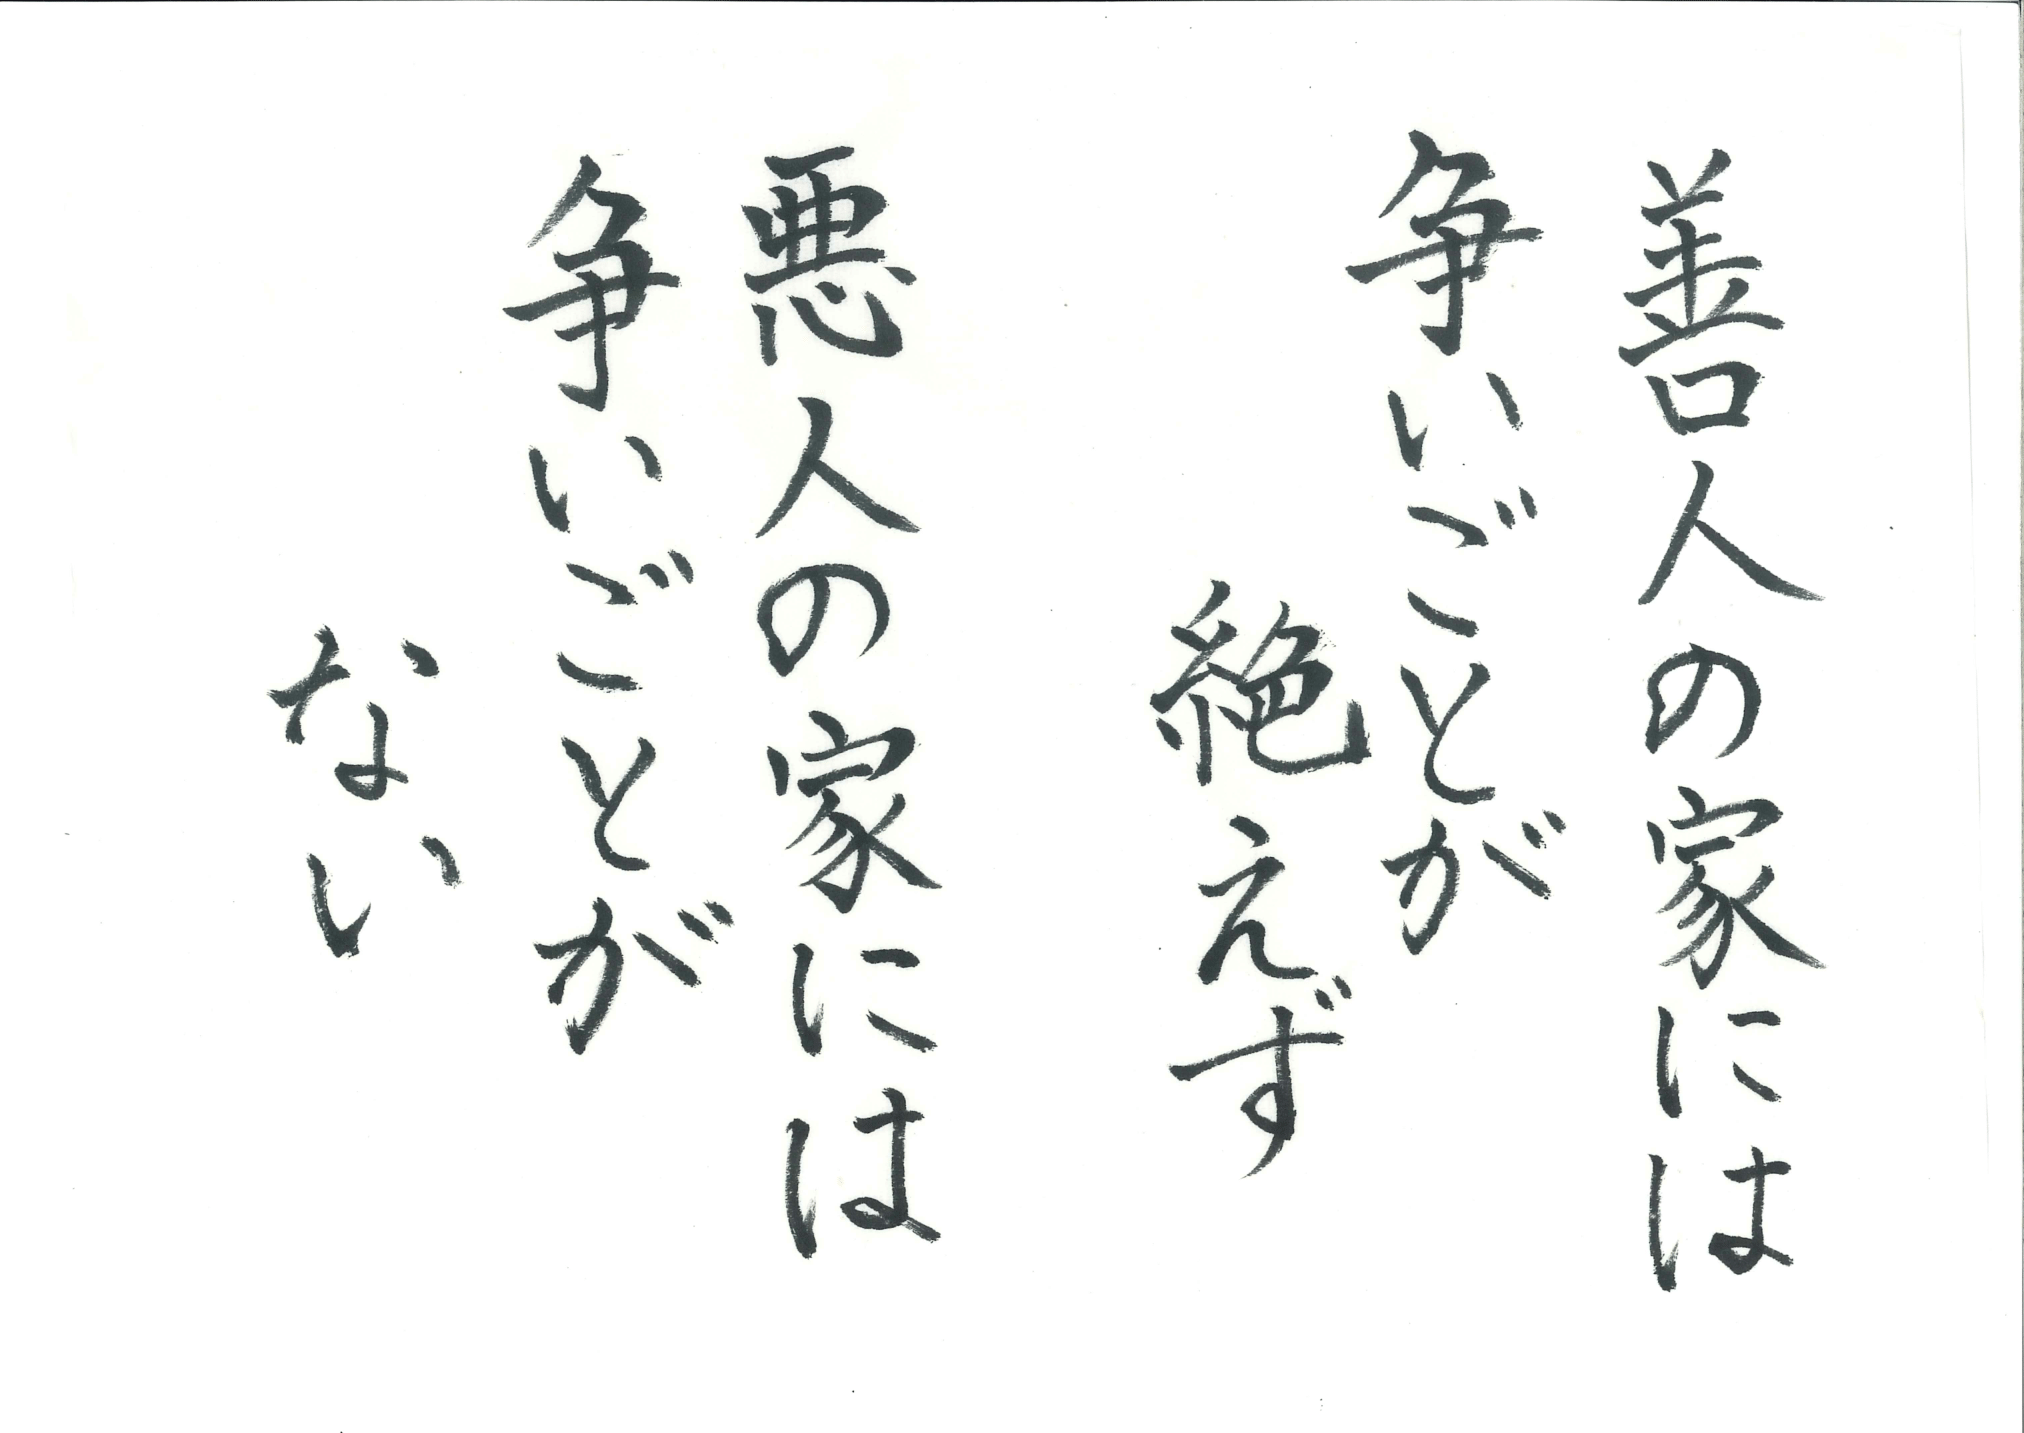 善人の家には
争いごとが
絶えず
悪人の家には
争いごとが
ない